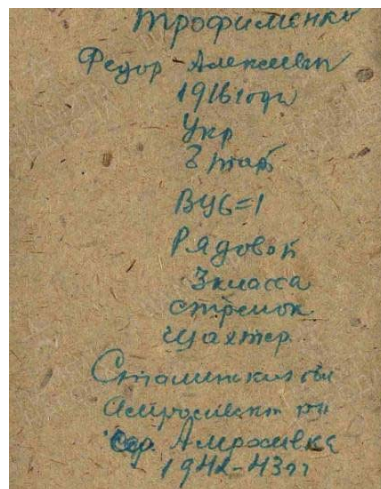 Трофименко
Федор Алексеевич
1916 года
Укр
ВУС=1
Рядовой
3 класса
стрелок
шахтер
Сталинская обл
Амвросиевк рн
Амросиевка
1942-43 гг